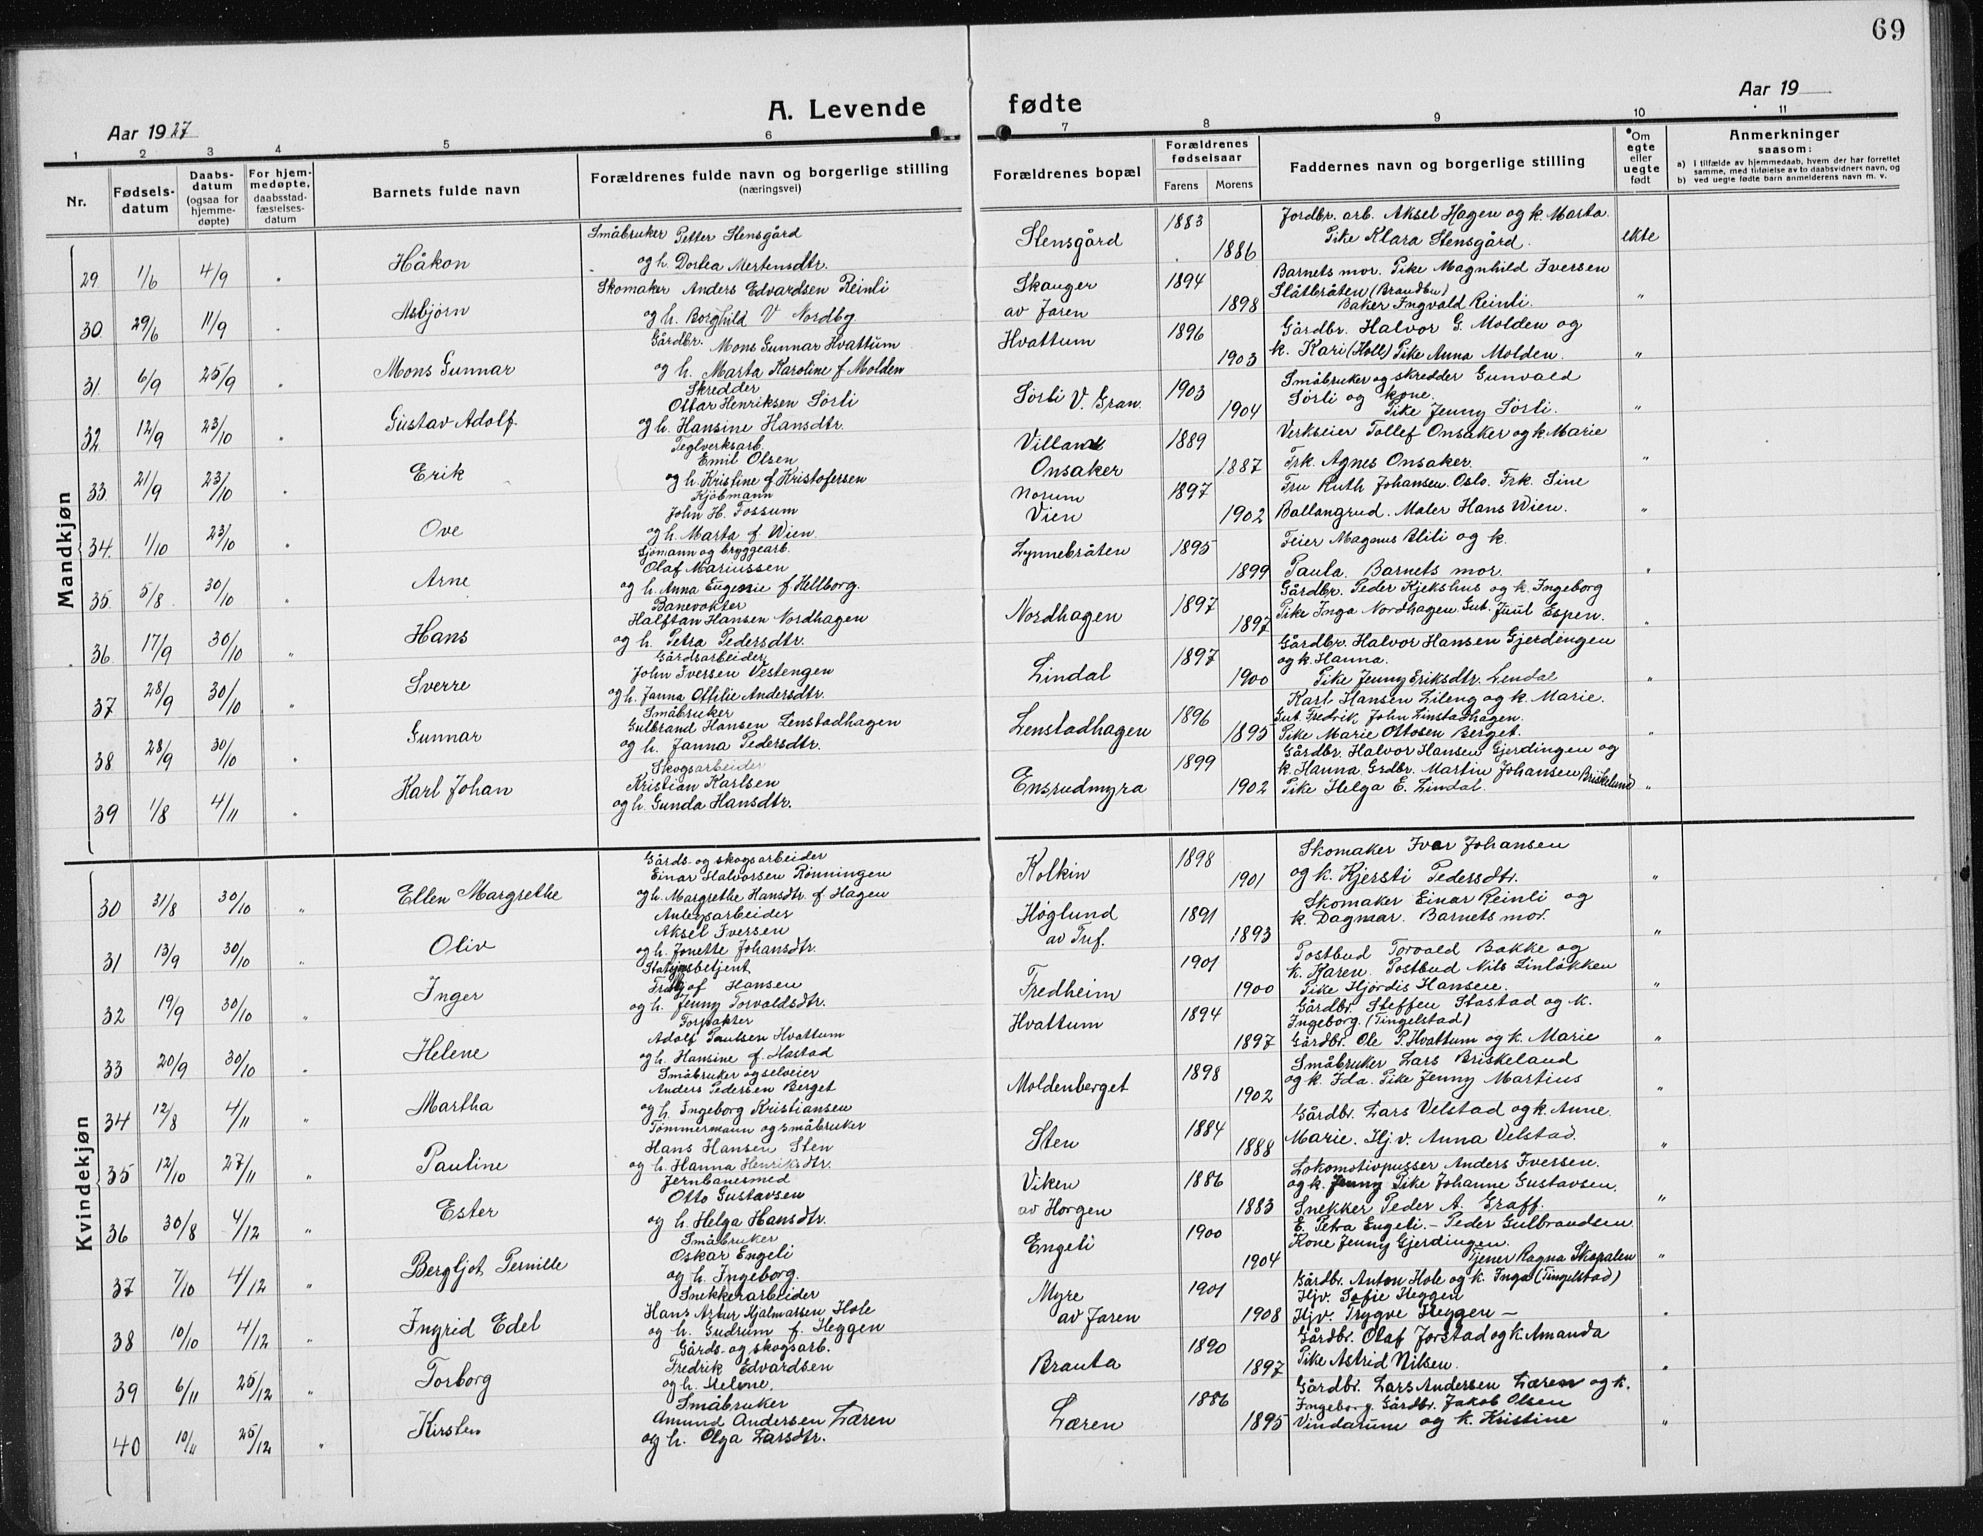 69
A. Levende fødte
Aar 1927
Aar 19
1 2 3 4 5 6 7 8 9 10 11
Nr.
Fødsels-datum
Daabs-datum (ogsaa for hjemme-døpte)
For hjem-medøpte, daabsstad-fæstelses-datum
Barnets fulde navn
Forældrenes fulde navn og borgerlige stilling (næringsvei)
Forældrenes bopæl
Forældrenes fødselsaar
Farens Morens
Faddernes navn og borgerlige stilling
Om egte eller uegte født
Anmerkninger saasom:
a) I tilfælde av hjemmedaab, hvem der har forrettet samme, med tilføielse av to daabsvidners navn, og
b) ved uegte fødte barn anmelderens navn m. v.
Mandkjøn
29. 1/6 4/9 " Håkon
Småbruker Petter Stensgård
og h. Dortea Mertensdtr.
Stensgård 1883 1886
Jordbr. arb. Aksel Hagen og k. Marta.
Pike Klara Stensgård. ekte
30. 29/6 11/9 Asbjørn
Skomaker Anders Edvardsen Reinli
og h. Borghild V Nordby
Skauger
av Jaren 1894 1898
Barnets mor. Pike Magnhild Iversen
Slåtbråten (Brandbu)
Baker Ingvald Reinli. "
31. 6/9 25/9 " Mons Gunnar
Gårdbr. Mons Gunnar Hvattum
og h. Marta Karoline f Molden
Hvattum 1896 1903
Gårdbr. Halvor G. Molden og
k. Kari (Holl) Pike Anna Molden. "
32. 12/9 23/10 " Gustav Adolf
Skredder
Ottar Henriksen Sørli
og h. Hansine Hansdtr.
Sørli V. Gran. 1903 1904
Småbruker og skredder Gunvald
Sørli og kone.
Pike Jenny Sørli. "
33 21/9 23/10 " Erik
Teglverksarb.
Emil Olsen
og h. Kristine f Kristofersen
Villand
Onsaker 1889 1887
Verkseier Tollef Onsaker og k. Marie
Frk. Agnes Onsaker. "
34. 1/10 23/10 " Ove
Kjøbmann
John H. Tossum
og h. Marta f. Wien
Norum
Vien 1897 1902
Fru Ruth Johansen. Oslo. Frk. Sine
Ballangrud. Maler Hans Wien. "
35. 5/8. 30/10 " Arne
Sjømann og bryggearb.
Olaf Mariussen
og h. Anna Eugenie f. Hellborg.
Lynnebråten 1895 1899
Feier Magnus Blili og k.
Paula. Barnets mor. "
36. 17/9 30/10 " Hans
Banevokter
Halftan Hansen Nordhagen
og h. Petra Pedersdtr.
Nordhagen 1897 1897
Gårdbr. Peder Kjekshus og k. Ingeborg
Pike Inga Nordhagen. Gut. Juul Espen. "
37 28/9 30/10 " Sverre
Gårdsarbeider
John Iversen Vestengen
og h. Janna Othilie Andersdtr.
Lindal 1897 1900
Gårdbr. Halvor Hansen Gjerdingen
og k. Hanna.
Pike Jenny Eriksdtr. Lendal "
38 28/9 30/10 " Gunnar
Småbruker
Gulbrand Hansen Lenstadhagen
og h. Janna Pedersdtr.
Lenstadhagen 1896 1895
Karl Hansen Lileng og k. Marie.
Gut. Fredrik John Linstadhagen.
Pike Marie Ottosen Berget. "
39 1/8 4/11 " Karl Johan
Skogsarbeider
Kristian Karlsen
og h. Gunda Hansdtr.
Ensrudmyra 1899 1902
Gårdbr. Halvor Hansen Gjerdingen og
k. Hanna. Grdbr. Martin Johansen Briskelund
Pike Helga E. Lindal. "
Kvindekjøn
30 31/8 30/10 " Ellen Margrethe
Gårds- og skogsarbeider
Einar Halvorsen Rönningen
og h. Margrethe Hansdtr. f Hagen
Kolkin 1898 1901
Skomaker Ivar Johansen
og k. Kjersti Pedersdtr. "
31 13/9 30/10 " Oliv
Anlegsarbeider
Aksel Iversen
og h. Jonette Johansdtr.
Høglund
av Tuf. 1891 1893
Skomaker Einar Reinli og
k. Dagmar. Barnets mor. "
32 19/9 30/10 " Inger
Stasjonsbetjent
Hansen
og h. Jenny Torvaldsdtr.
Fredheim 1901 1900
Postbud Torvald Bakke og
k. Karen. Postbud Nils Linløkken
Pike Hjørdis Hansen. "
33 20/9 30/10 " Helene
Forpakter
Adolf Paulsen Hvattum
og h. Hansine f. Hastad
Hvattum 1894 1897
Gårdbr. Steffen Stastad og k.
Ingeborg. (Tingelstad)
Gårdbr. Ole P. Hvattum og k. Marie "
34 12/8 4/11 " Martha
Småbruker og seloeier
Anders Pedersen Berget
og h. Ingeborg Kristiansen
Moldenberget 1898 1902
Småbruker Lars Briskeland
og k. Ida. Pike Jenny Martius "
35 12/10 27/11 " Pauline
Tömmermann og småbruker
Hans Hansen Sten
og h. Hanna Henriksdtr.
Sten 1884 1888
Gårdbr. Lars Velstad og k. Anne
Marie. Hj.v. Anna Velstad. "
36 30/8 4/12 " Ester
Jernbanesmed
Otto Gustavsen
og h. Helga Hansdtr.
Viken
av Horgen 1886 1883
Lokomotivpusser Anders Iversen.
og k. Jenny Pike Johanne Gustavsen.
Snekker Peder A. Graff. "
37 7/10 4/12 " Bergljot Pernille
Småbruker
Oskar Engeli
og h. Ingeborg.
Engeli 1900 1904
E. Petra Engeli. - Peder Gulbrandsen
Kone Jenny Gjerdingen.
Tjener Ragna Skopalen "
38 10/10 4/12 " Ingrid Edel
Snekkerarbeider
Hans Artur Hjalmarsen Hole
og h. Gudrum f. Heggen
Myre
av Jaren 1901 1908
Gårdbr. Anton Hole og k. Inga (Tingelstad)
Hjv. Sofie Heggen
Hjv. Trygve Heggen - "
39 6/11 25/12 " Torborg
Gårds- og skogsarb.
Fredrik Edvardsen
og h. Helene.
Brauta 1890 1897
Gårdbr. Olaf Jorstad og k. Amanda
Pike Astrid Nilsen. "
40 10/11 25/12 " Kirsten
Småbruker
Amund Andersen Læren
og h. Olga Larsdtr.
Læren 1886 1895
Gårdbr. Lars Andersen Læren og k.
Ingeborg. Gårdbr. Jakob Olsen
Vindarum og k. Kristine "